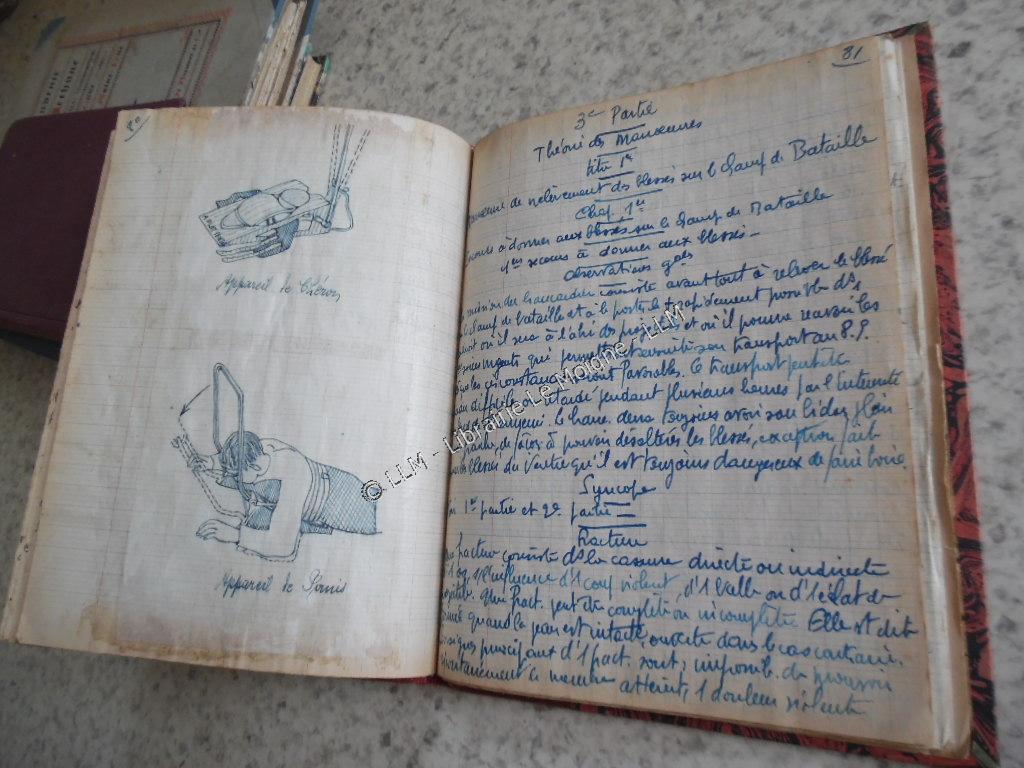 80
Appareil de
Appareil de
81
3e Partie
Théorie des Manœuvres
titre 1er
de relèvement des blessés sur le Champ de Bataille
Chap. 1er
à donner aux blessés sur le Champ de Bataille
1ers secours à donner aux blessés -
Observations gales
mission du brancardier consiste avant tout à relever le blessé
champ de bataille et à le porter le + rapidement possible ds 1
où il sera à l'abri des projectiles et où il pourra recevoir les
urgents qui permettent ensuite son transport au P.S.
les circonstances sont favorables. Ce transport peut être
difficile ou retardé pendant plusieurs heures par l'intensité
Le branc. devra toujours avoir son bidon plein
de façon à pouvoir désaltérer les blessés, exception fait
blessés du Ventre qu'il est toujours dangereux de faire boire.
Syncope
1re partie et 2e partie -
Fracture
fracture consiste ds la cassure directe ou indirecte
1 os, s/ l'influence d'1 coup violent, d'1 balle ou d'1 éclat de
Une fract. peut être complète ou incomplète Elle est dite
quand la peau est intacte, ouverte dans le cas contraire.
signes principaux d'1 fract. sont, impossib. de mouvoir
spontanément le membre atteint, 1 douleur violente
© LLM - Librairie Le Moigne - LLM